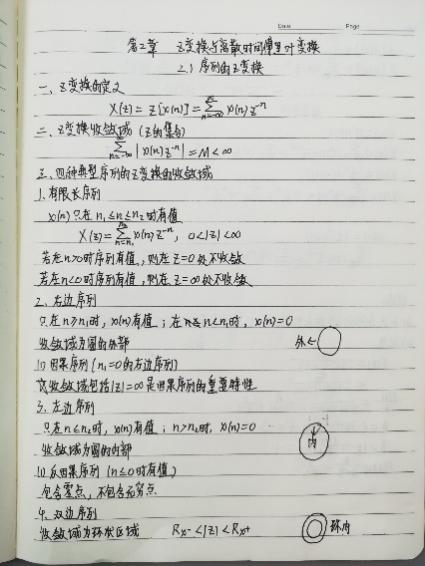 Date Page
第二章 Z变换与离散时间傅里叶变换
2.1 序列的Z变换
一、Z变换的定义
X(z) = Z[x(n)] = ∑_{n=-∞}^{∞} x(n) z^{-n}
二、Z变换收敛域 (Z的集合)
∑_{n=-∞}^{∞} |x(n) z^{-n}| = M < ∞
三、四种典型序列的Z变换的收敛域
1、有限长序列
x(n)只在 n₁≤n≤n₂时有值
X(z) = ∑_{n=n₁}^{n₂} x(n) z^{-n}, 0<|z|<∞
若在n>0时序列有值,则在z=0处不收敛
若在n<0时序列有值,则在z=∞处不收敛
2、右边序列
只在n≥n₁时, x(n)有值;在 n<n₁时, x(n)=0
收敛域为圆的外部 外←
(1) 因果序列(n₁=0的右边序列)
收敛域包括|z|=∞是因果序列的重要特性
3、左边序列
只在n≤n₂时, x(n)有值; n>n₂时, x(n)=0
收敛域为圆的内部 内
(1) 反因果序列(n≤0时有值)
包含零点,不包含无穷点
4、双边序列
收敛域为环状区域 Rx- <|z|< Rx+ 环内